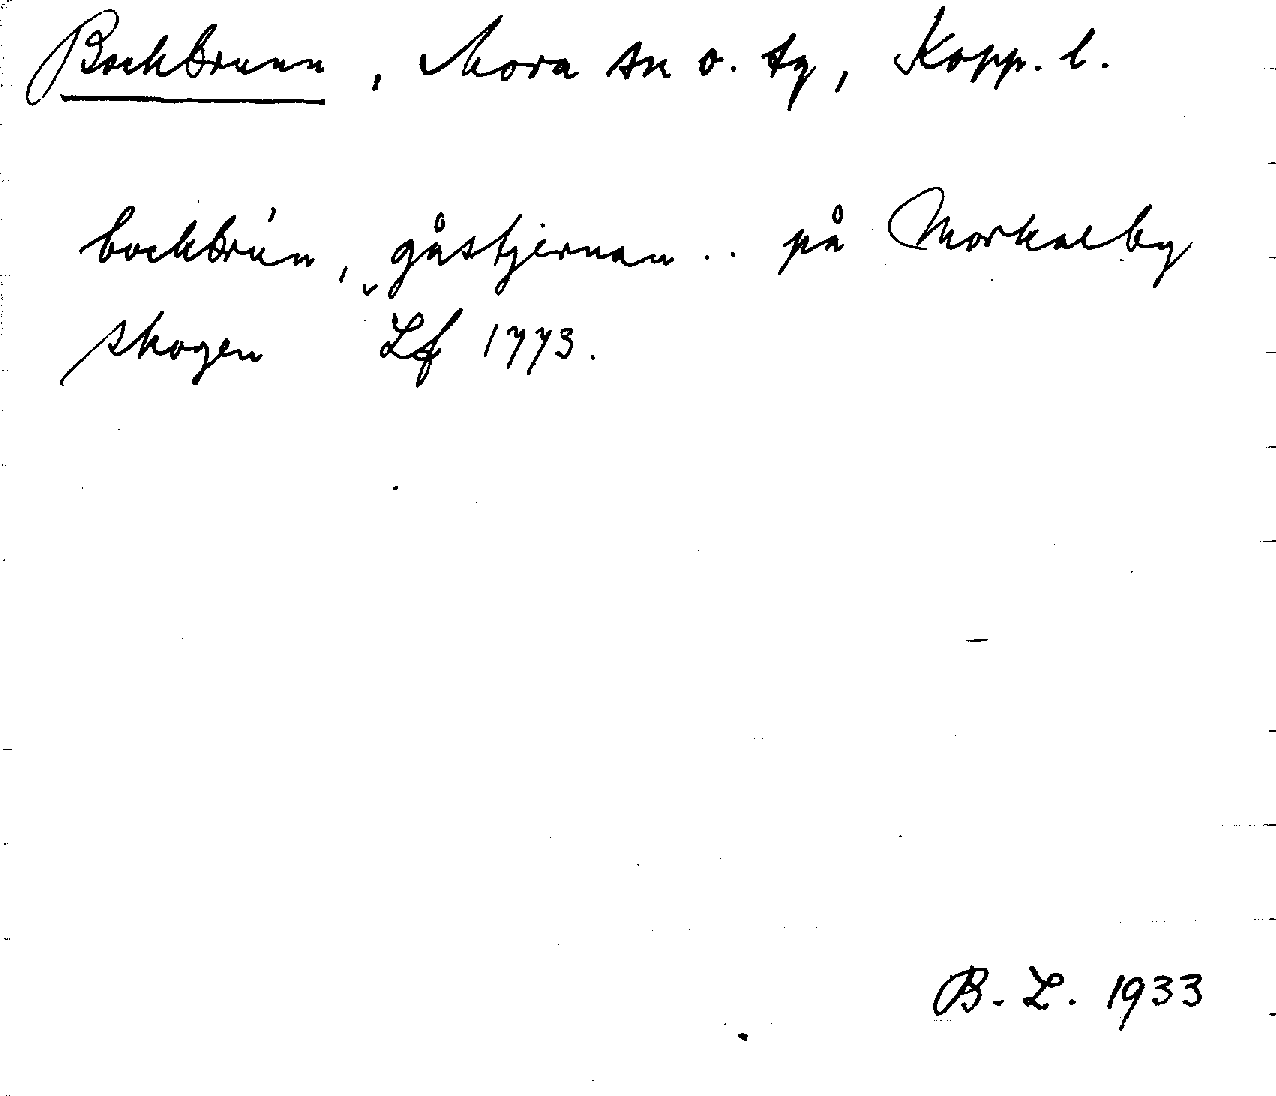 Bockbrunn, Mora sn o. tg, Kopp. l.
bockbrún, gåstjernan .. på Morkarlby
skogen Lf 1773.
B. L. 1933